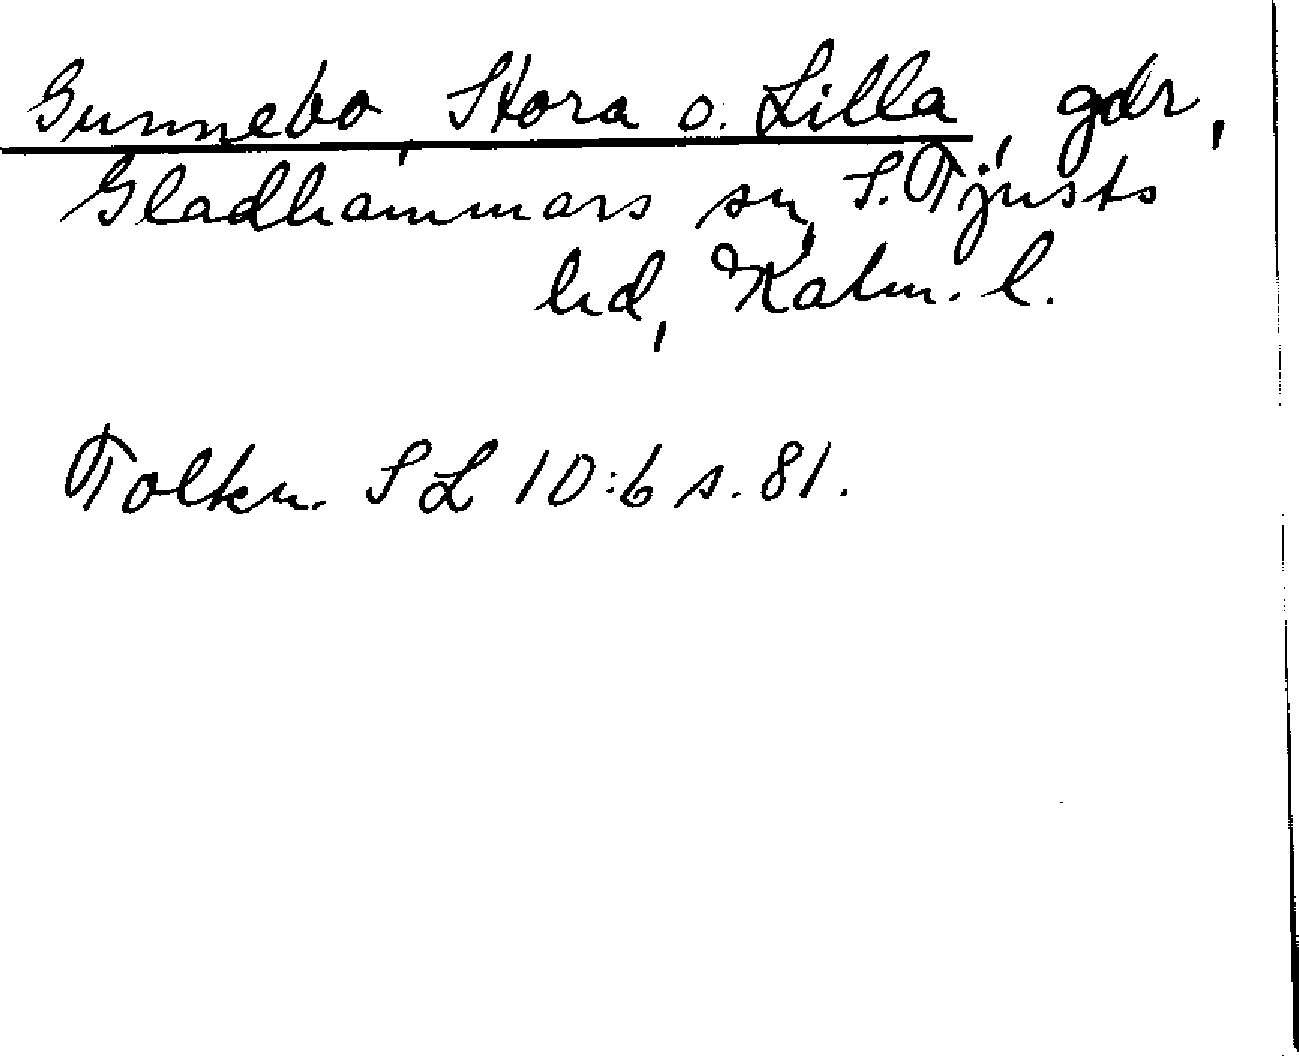 Gunnebo, Stora o. Lilla, gdr,
Gladhammars sn, S. Tjusts
hd, Kalm. l.
Tolkn. SL 10:6 s. 81.